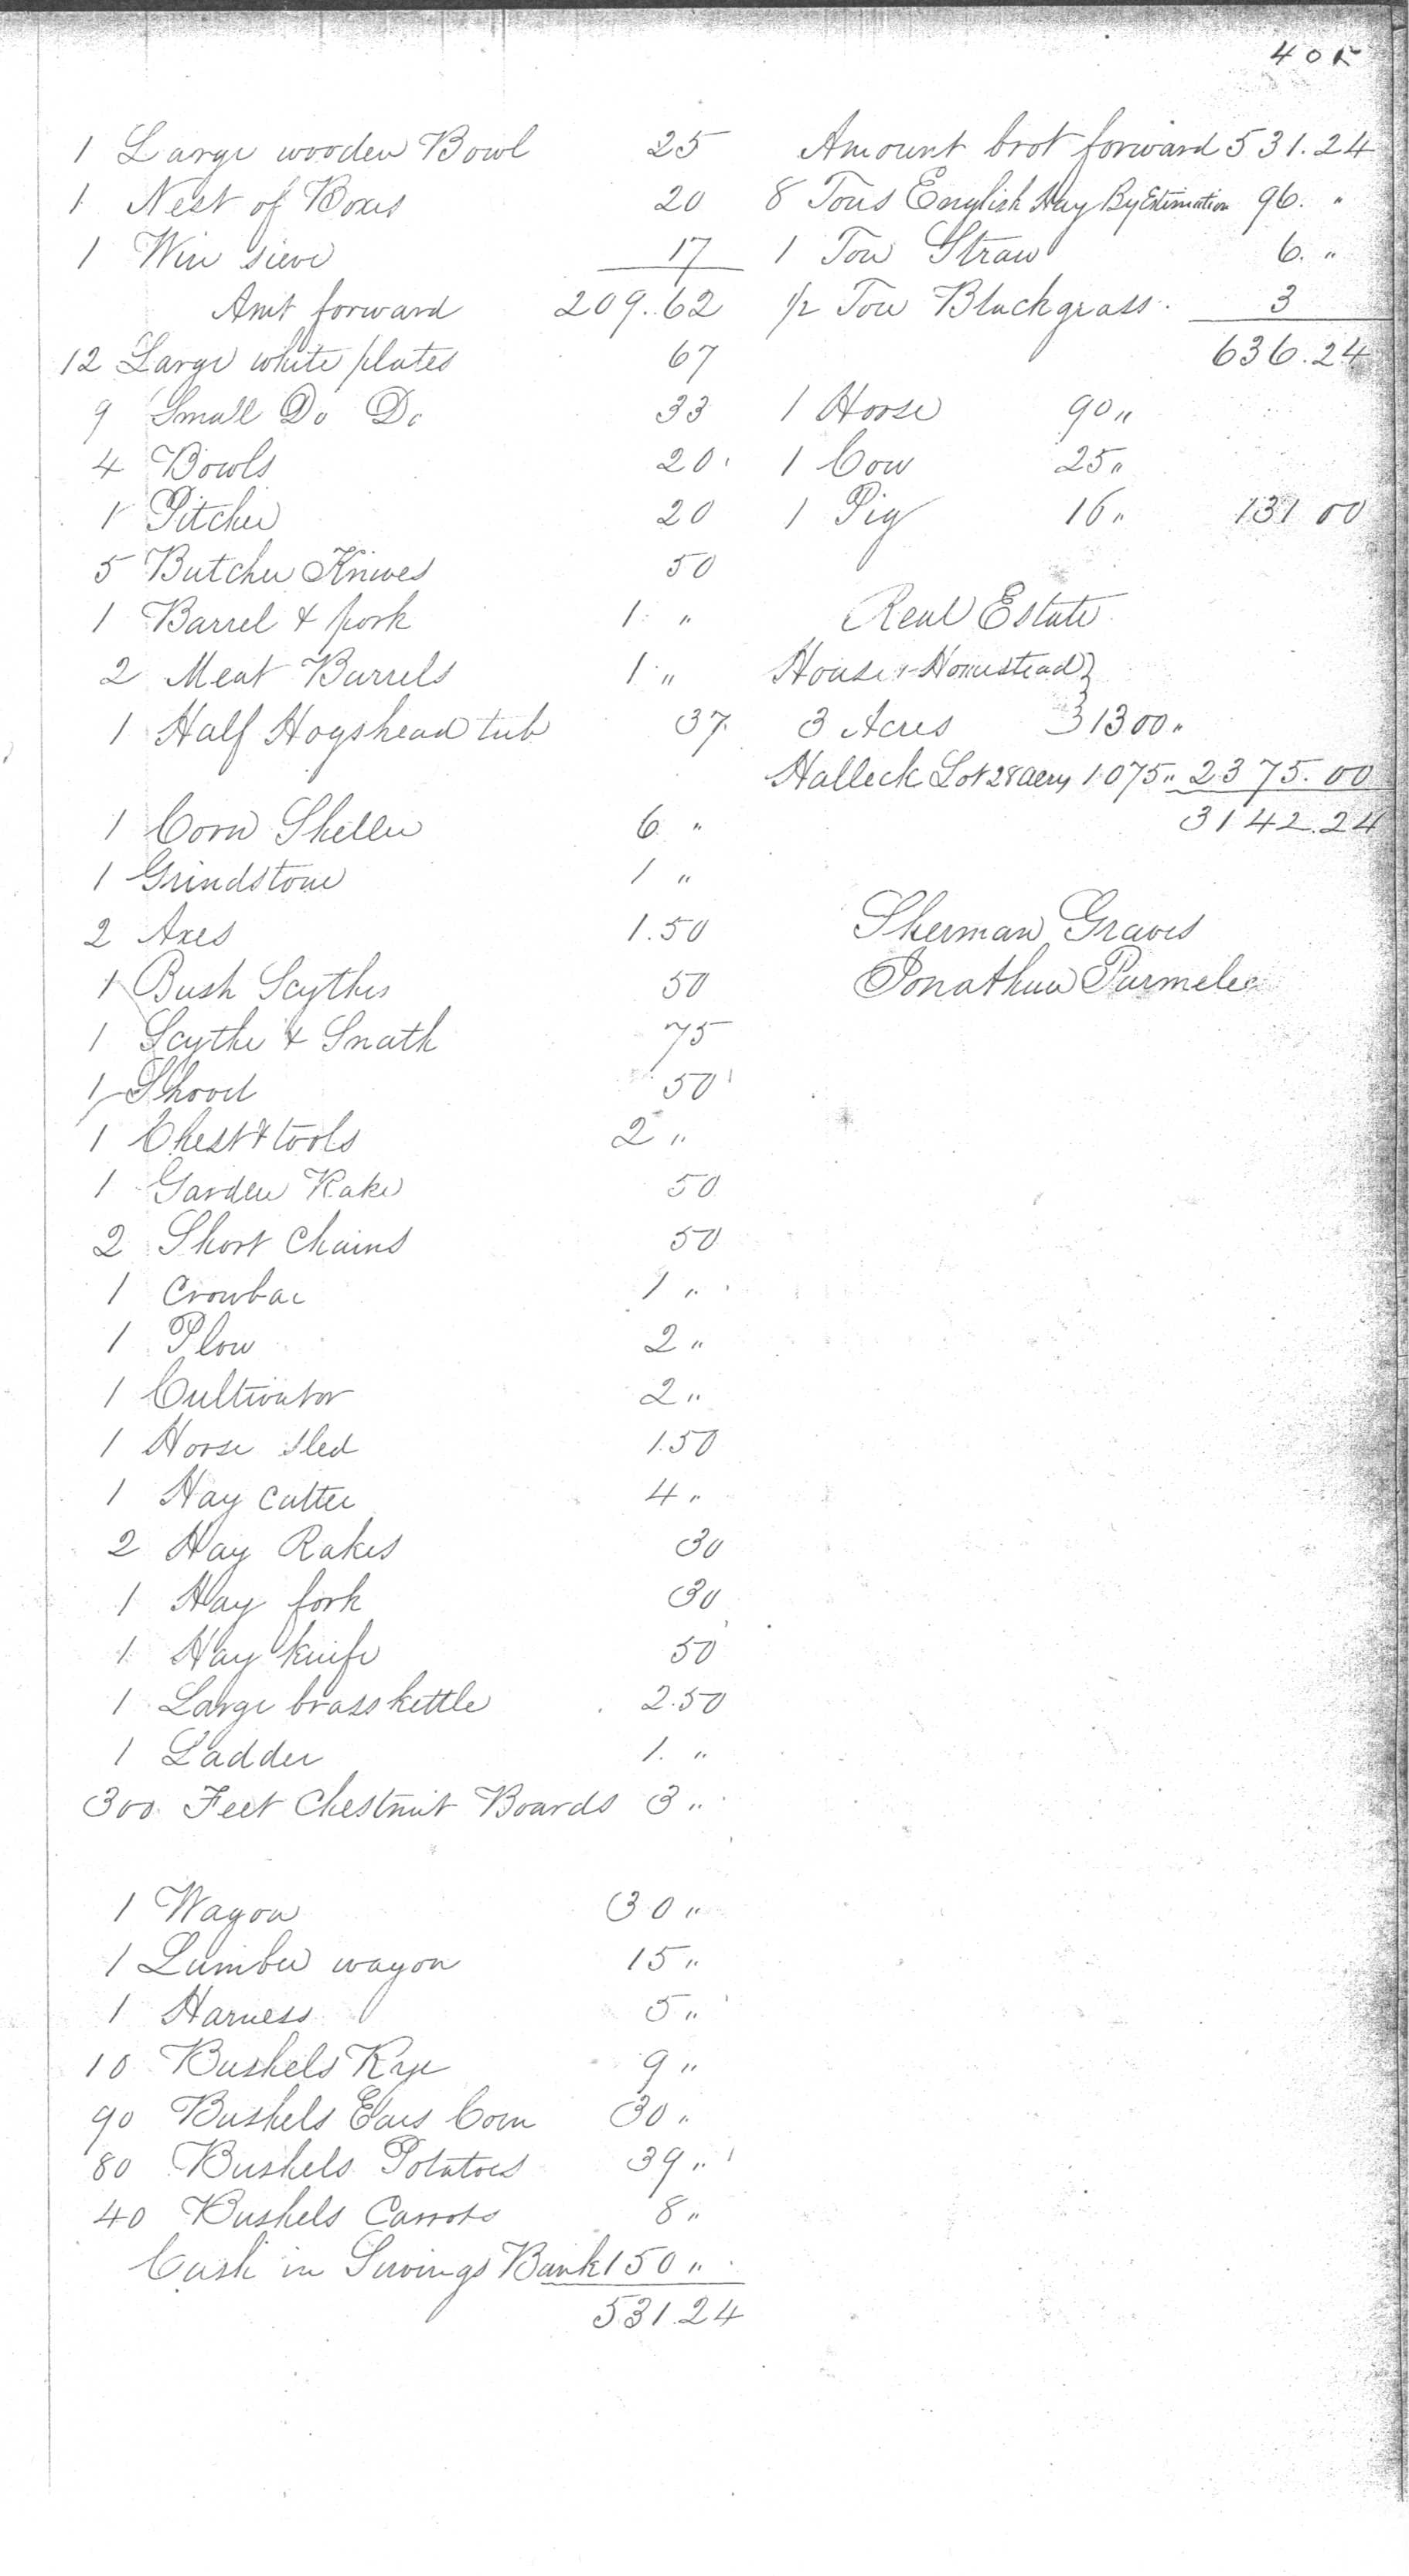 405
1 Large wooden Bowl 25
1 Nest of Boxes 20
1 Wire sieve 17
Amt forward 209.62
12 Large white plates 67
9 Small Do Do 33
4 Bowls 20
1 Pitcher 20
5 Butcher Knives 50
1 Barrel & pork 1 "
2 Meat Barrels 1 "
1 Half Hogshead tub 37
1 Corn Sheller 6 "
1 Grindstone 1 "
2 Axes 1.50
1 Bush Scythes 50
1 Scythe & Snath 75
1 Shovel 50
1 Chest & tools 2 "
1 Garden Rake 50
2 Short Chains 50
1 Crowbar 1 "
1 Plow 2 "
1 Cultivator 2 "
1 Horse sled 1.50
1 Hay Cutter 4 "
2 Hay Rakes 30
1 Hay fork 30
1 Hay knife 50
1 Large brass kettle 2.50
1 Ladder 1. "
300 Feet Chestnut Boards 3 "
1 Wagon 30 "
1 Lumber wagon 15 "
1 Harness 5 "
10 Bushels Rye 9 "
90 Bushels Ears Corn 30 "
80 Bushels Potatoes 39 "
40 Bushels Carrots 8 "
Cash in Savings Bank 150 "
531.24
Amount brot forward 531.24
8 Tons English Hay By Estimation 96. "
1 Ton Straw 6. "
1/2 Ton Blackgrass 3
636.24
1 Horse 90 "
1 Cow 25 "
1 Pig 16 " 131 00
Real Estate
House & Homestead }
3 Acres } 1300 "
Halleck Lot 28 acres 1075 " 2375.00
3142.24
Sherman Graves
Jonathan Parmelee